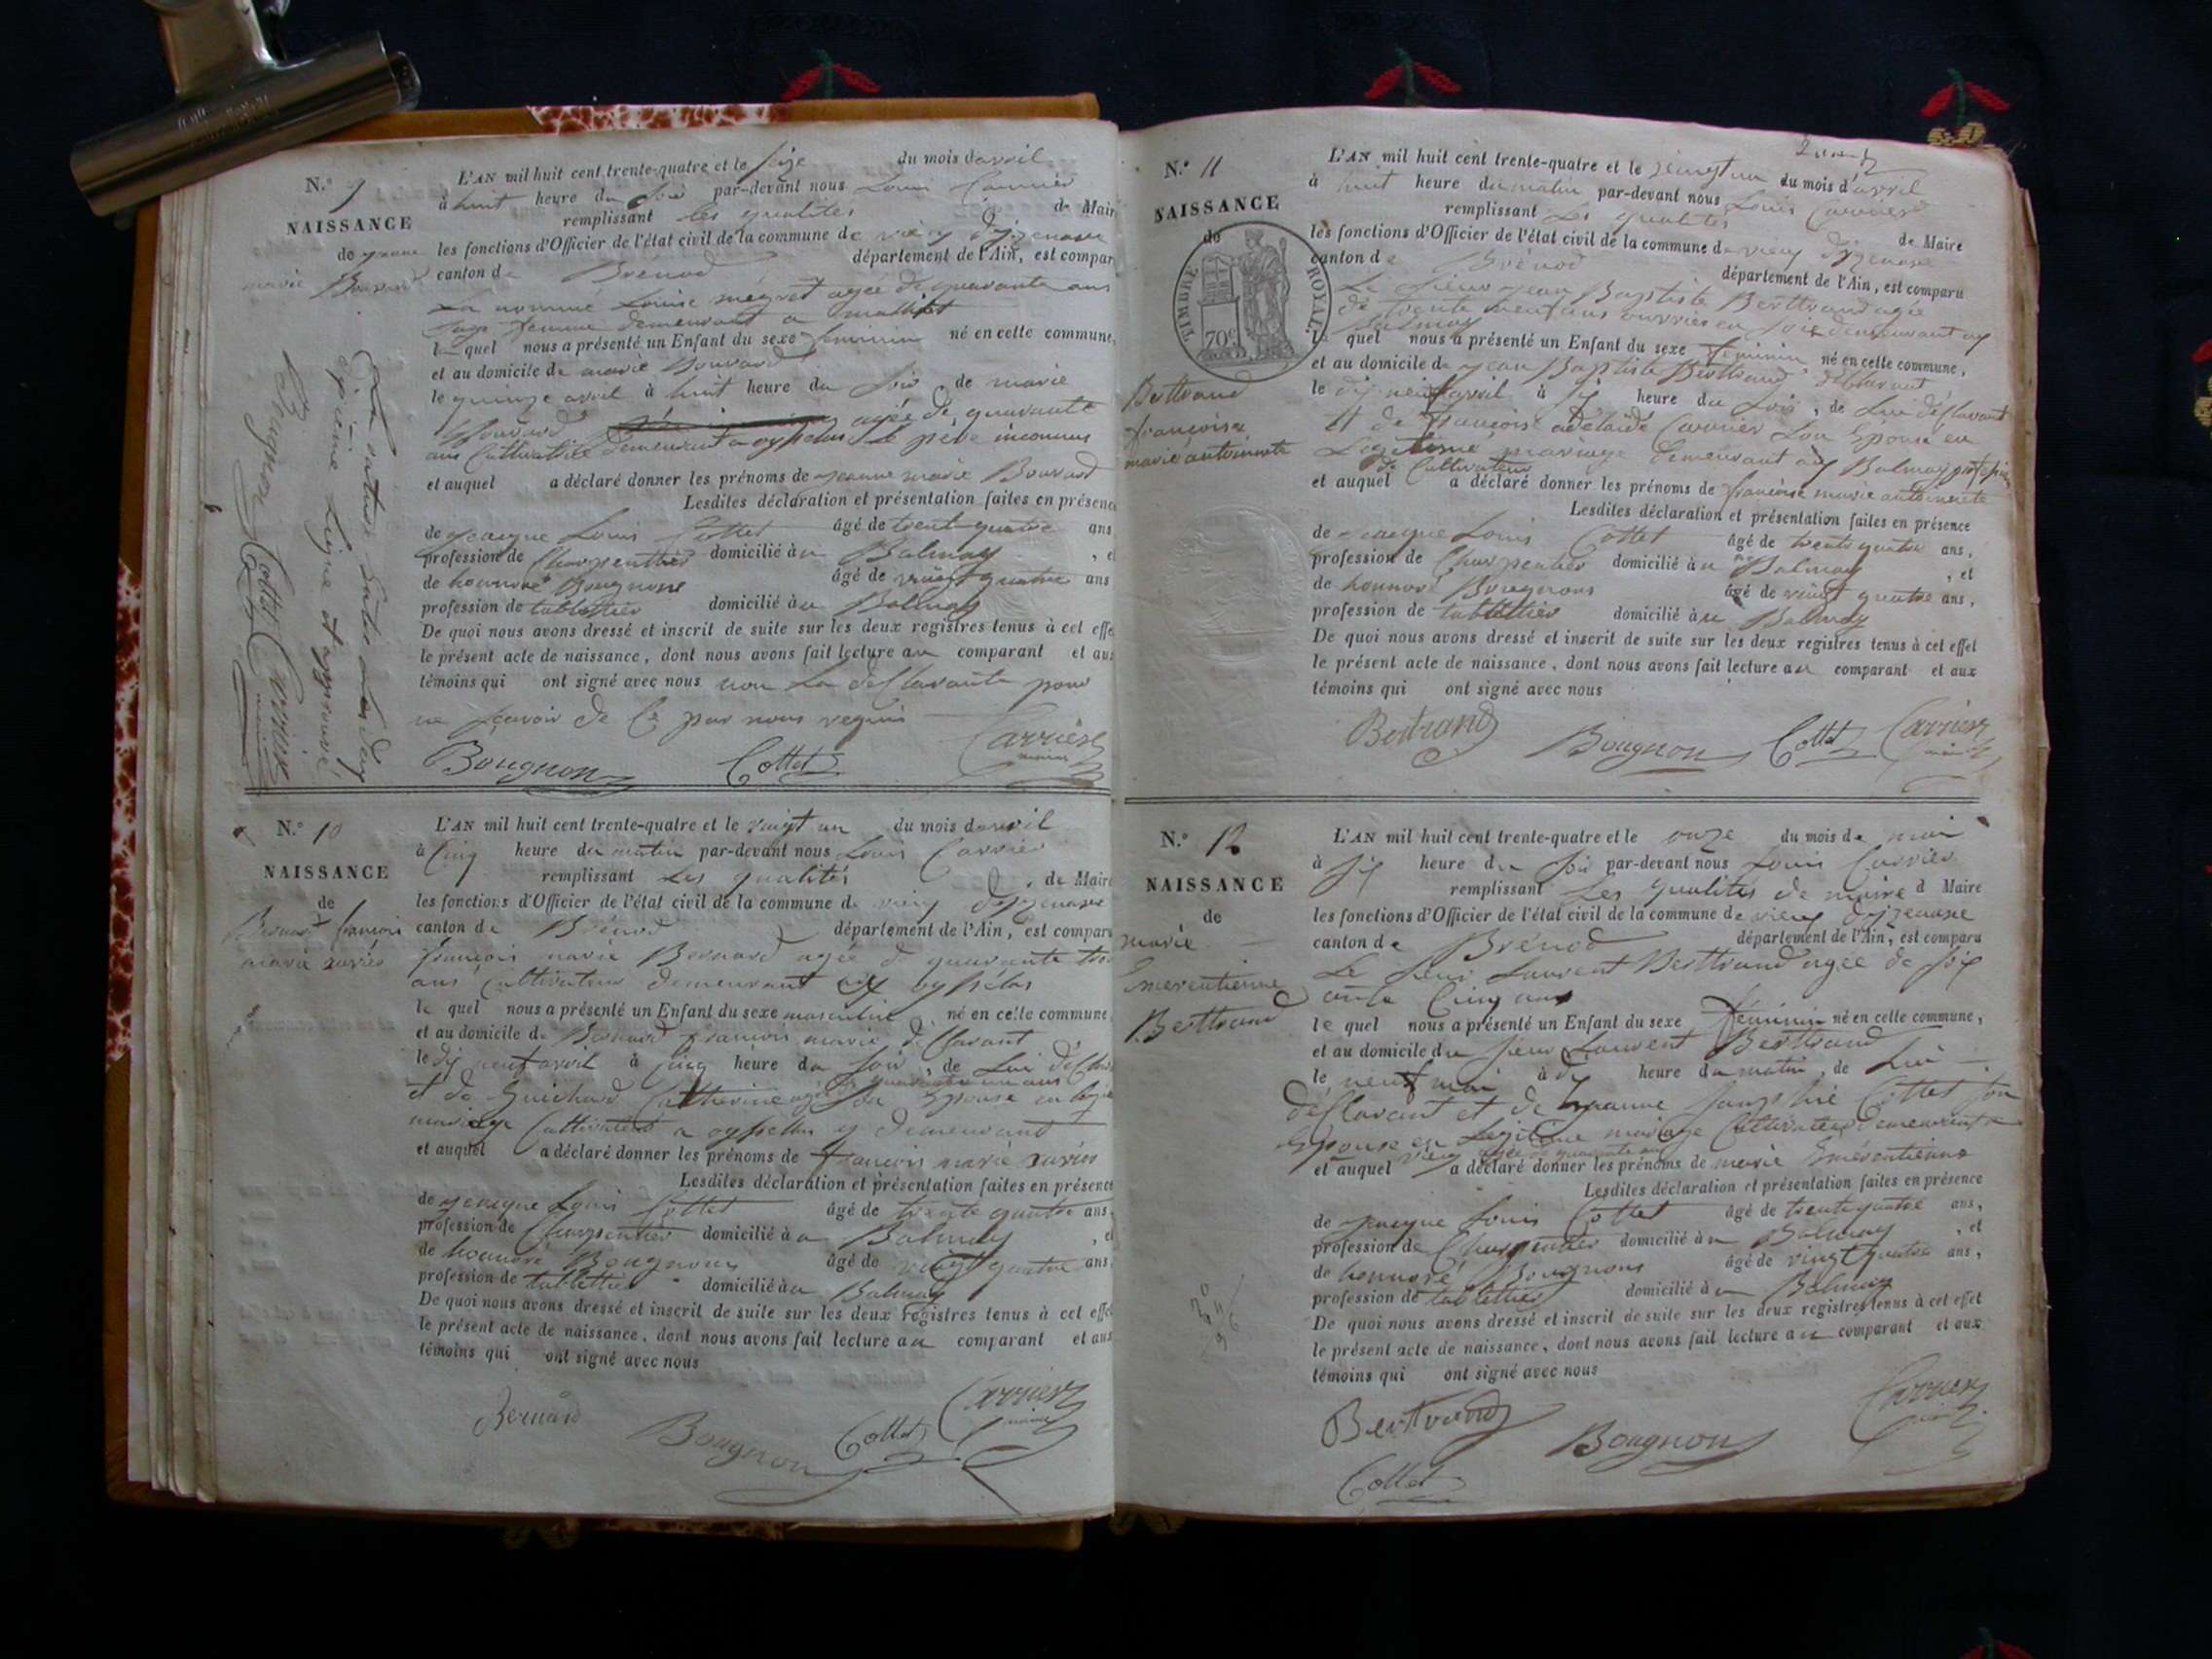 N.° 9
NAISSANCE
de jeanne
marie Bouvard
L'AN mil huit cent trente-quatre et le seize du mois d'avril
à huit heure du soir par-devant nous Louis Carrier
remplissant les qualités de Maire
les fonctions d'Officier de l'état civil de la commune de vieux dizenave
canton de Brénod département de l'Ain, est compar
La nommé Louise mégret agée de quarante ans
sage femme demeurant a maillat
la quel nous a présenté un Enfant du sexe feminin né en cette commune,
et au domicile de marie Bouvard
le quinze avril à huit heure du soir, de marie
Bouvard agée de quarante
ans Cultivatrice demeurant a oysselas le père inconnus
et auquel a déclaré donner les prénoms de jeanne marie Bouvard
Lesdites déclaration et présentation faites en présence
de jacque Louis Cottet âgé de trente quatre ans
profession de Charpentier domicilié à au Balmay, et
de honnoré Bougnons âgé de vingt quatre ans
profession de tablettier domicilié à au Balmay
De quoi nous avons dressé et inscrit de suite sur les deux registres tenus à cet effe
le présent acte de naissance, dont nous avons fait lecture au comparant et aux
témoins qui ont signé avec nous non la desclarante pour
ne scavoir de Ce par nous requis
Bougnon Cottet Carrier
maire
ligne et approuvé
Bougnon Cottet Carrier
N.° 10
NAISSANCE
de
Bernard francois
marie xavier
L'AN mil huit cent trente-quatre et le vingt un du mois d'avril
à Cinq heure du matin par-devant nous Louis Carrier
remplissant Les qualités, de Maire
les fonctions d'Officier de l'état civil de la commune de vieux dizenave
canton de Brénod département de l'Ain, est comparu
françois marie Bernard agée de quarante trois
ans Cultivateur demeurant aux oysselas
le quel nous a présenté un Enfant du sexe masculin né en cette commune
et au domicile de Bernard francois marie desclarant
le dix neuf avril à cinq heure du soir, de Lui desclar
quarante un ans
et de Guichard Catherine agée son Epouse en légi
mariage Cultivateur a oysselas y demeurant
et auquel a déclaré donner les prénoms de francois marie xavier
Lesdites déclaration et présentation faites en présence
de jacque Louis Cottet âgé de trente quatre ans
profession de Charpentier domicilié à au Balmay, et
de honnoré Bougnons âgé de vingt quatre ans
profession de tablettier domicilié à au Balmay
De quoi nous avons dressé et inscrit de suite sur les deux registres tenus à cet effe
le présent acte de naissance, dont nous avons fait lecture au comparant et aux
témoins qui ont signé avec nous
Bernard Bougnon Cottet Carrier
maire
N.° 11
NAISSANCE
de
TIMBRE ROYAL.
70 c
Berttrand
françoise
marie antoinette
L'AN mil huit cent trente-quatre et le vingt un du mois d'avril
à huit heure du matin par-devant nous Louis Carrier
remplissant Les qualités de Maire
les fonctions d'Officier de l'état civil de la commune de vieux dizenave
canton de Brénod département de l'Ain, est comparu
Le sieur jean Baptiste Berttrand agée
de trente neuf ans ouvrier en soie demeurant au
Balmay
le quel nous a présenté un Enfant du sexe feminin né en cette commune,
et au domicile de jean Baptiste Berttrand desclarant
le dix neuf avril à six heure du soir, de Lui desclarant
et de françoise adelaide Carrier son Epouse en
Legitime mariage demeurant au Balmay
de Cultivateur
et auquel a déclaré donner les prénoms de françoise marie antoinette
Lesdites déclaration et présentation faites en présence
de jacque Louis Cottet âgé de trente quatre ans,
profession de Charpentier domicilié à au Balmay, et
de honnoré Bougnons âgé de vingt quatre ans,
profession de tablettier domicilié à au Balmay
De quoi nous avons dressé et inscrit de suite sur les deux registres tenus à cet effet
le présent acte de naissance, dont nous avons fait lecture au comparant et aux
témoins qui ont signé avec nous
Bertrand Bougnon Cottet Carrier
maire
N.° 12
NAISSANCE
de
marie
Emerentienne
Berttrand
L'AN mil huit cent trente-quatre et le onze du mois de mai
à six heure du soir par-devant nous Louis Carrier
remplissant Les qualités de maire d Maire
les fonctions d'Officier de l'état civil de la commune de vieux dizenave
canton de Brénod département de l'Ain, est comparu
Le sieur Laurent Berttrand agée de soix
ante Cinq ans
le quel nous a présenté un Enfant du sexe féminin né en cette commune,
et au domicile du sieur Laurent Berttrand
le neuf mai à dix heure du matin, de Lui
desclarant et de jeanne josephie Cottet son
Epouse en Legitime mariage Cultivateur demeurant a
vieux agée de quarante ans
et auquel a déclaré donner les prénoms de marie Emérentienne
Lesdites déclaration et présentation faites en présence
de jacque Louis Cottet âgé de trente quatre ans,
profession de Charpentier domicilié à au Balmay, et
de honnoré Bougnons âgé de vingt quatre ans,
profession de tablettier domicilié à au Balmay
De quoi nous avons dressé et inscrit de suite sur les deux registres tenus à cet effet
le présent acte de naissance, dont nous avons fait lecture au comparant et aux
témoins qui ont signé avec nous
Berttrand Bougnon Carrier
maire
Cottet